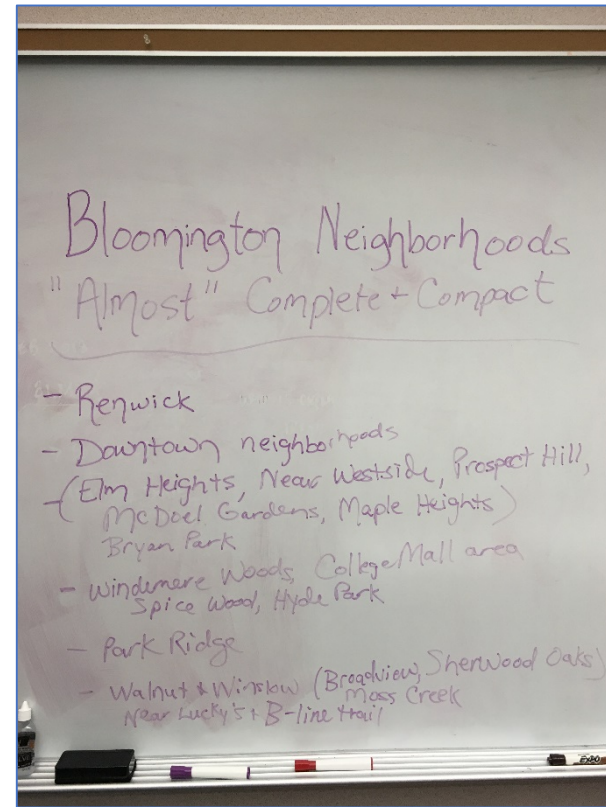 Bloomington Neighborhoods
"Almost" Complete + Compact
- Renwick
- Downtown neighborhoods
- (Elm Heights, Near Westside, Prospect Hill,
McDoel Gardens, Maple Heights)
Bryan Park
- Windemere Woods, College Mall area
Spice Wood, Hyde Park
- Park Ridge
- Walnut + Winslow (Broadview, Sherwood Oaks)
Moss Creek
Near Lucky's + B-line trail
EXPO